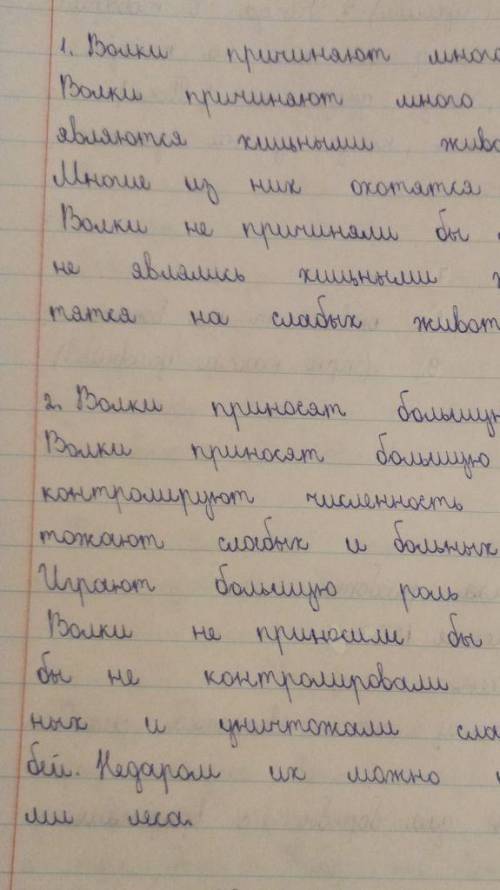 1. Волки причиняют много
Волки причинают много
являются хищными живо
Многие из них охотятся
Волки не причиняли бы
не являлись хищными
тятся на слабых живот
2. Волки приносят большую
Волки приносят большую
контролируют численность
тожают слабых и больных
Играют большую роль
Волки не приносили бы
бы не контролировали
ных и уничтожали сла
бей. Недаром их можно
ми леса.